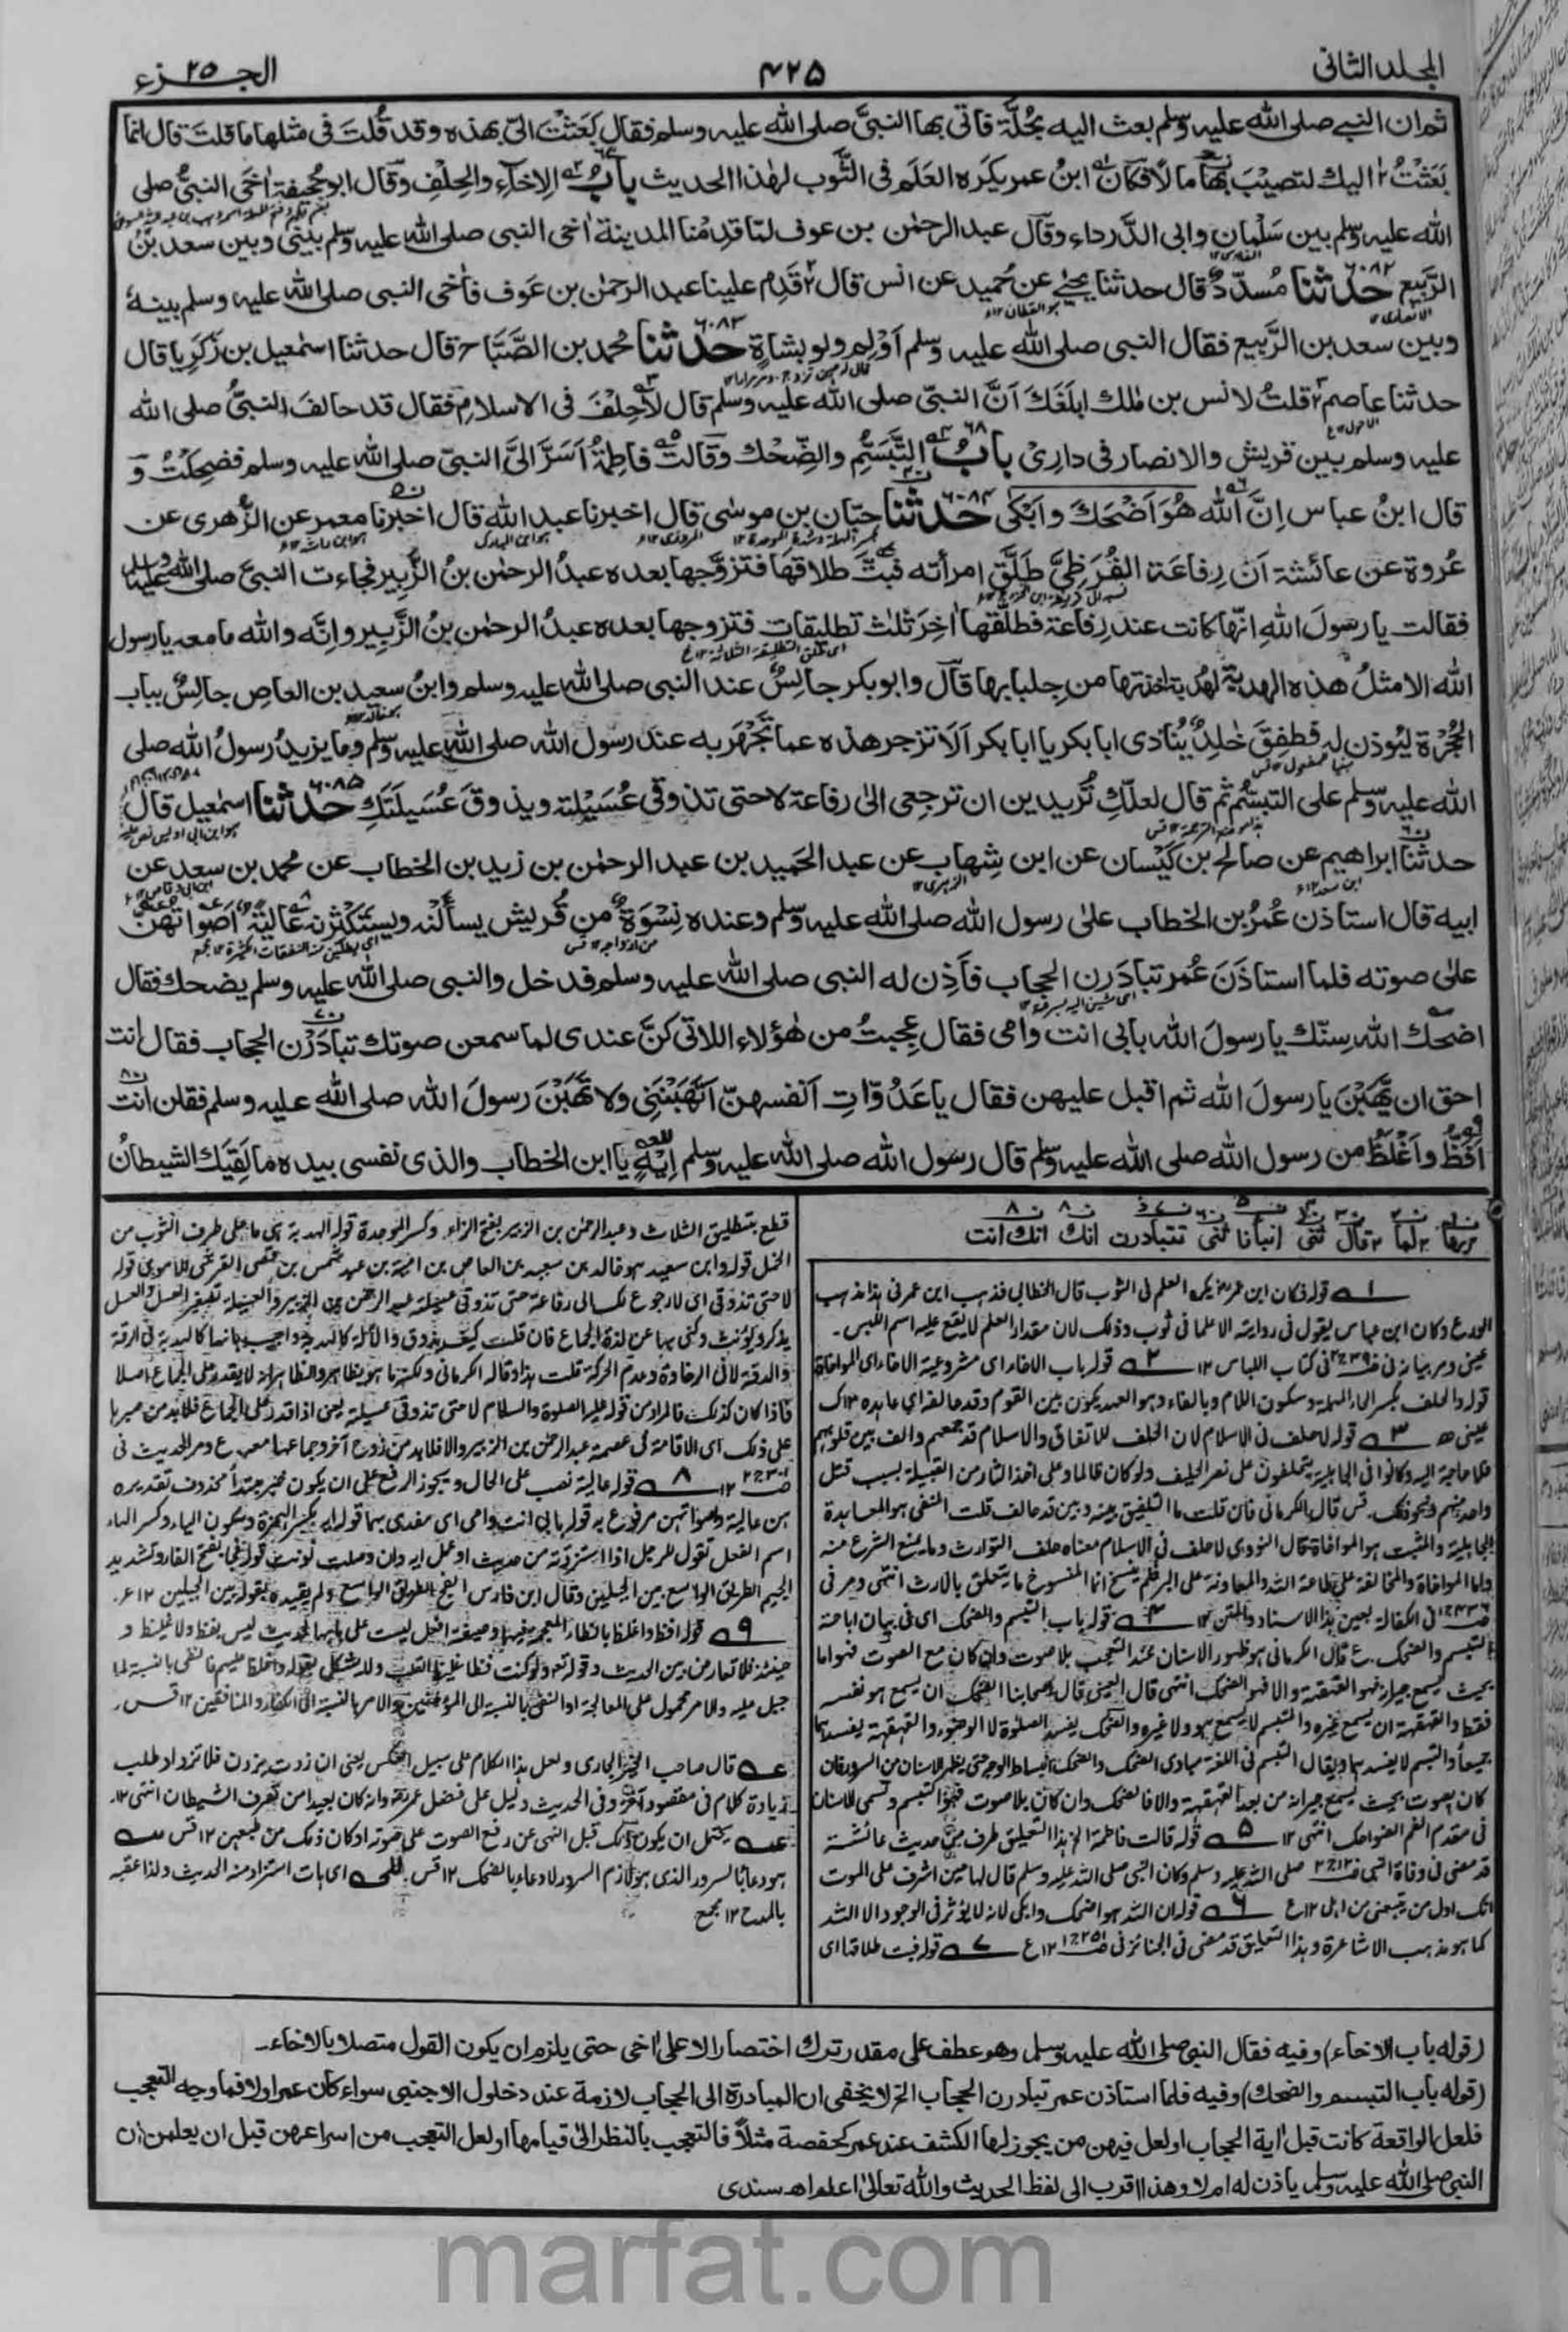 المجلد الثانی
۴۲۵
الجزء ۲۵
ثم ان النبی صلی الله علیه وسلم بعث الیه بحُلّة فاتی بها النبیَّ صلی الله علیه وسلم فقال بَعَثْتَ الیّ بهذه وقد قُلتَ فی مثلها ما قلتَ قال انما
بَعَثْتُ الیك لتصیْبَ بها مالاً فکان ابنُ عمر یکرَه العَلَم فی الثَّوب لهٰذا الحدیث بابُ الاِخاء والحِلْفِ وقال ابو جُحیفة اٰخی النبیُّ صلی
الله علیه وسلم بین سَلْمان وابی الدَّرداء وقال عبد الرحمٰن بن عوف لمّا قدِمْنا المدینة اٰخی النبی صلی الله علیه وسلم بینی وبین سعد بنِ
الرَّبیع ۶۰۸۲ حدثنا مُسدّدٌ قال حدثنا یحیٰی عن حُمیدٍ عن انس قال قَدِم علینا عبد الرحمٰن بن عَوف فاٰخی النبی صلی الله علیه وسلم بینهٗ
وبین سعد بن الرَّبیع فقال النبی صلی الله علیه وسلم اَوْلِم ولو بشاةٍ ۶۰۸۳ حدثنا محمد بن الصَّبَّاح قال حدثنا اسمٰعیل بن زکرِیا قال
حدثنا عاصم قلتُ لانس بن مٰلك ابلَغَكَ اَنَّ النبیَّ صلی الله علیه وسلم قال لا حِلْفَ فی الاسلام فقال قد حالفَ النبیُّ صلی الله
علیه وسلم بین قریش والانصار فی داری ۶۸ بابُ التَّبَسُّمِ والضِّحْك وقالت فاطِمةُ اَسَرَّ الیَّ النبیُّ صلی الله علیه وسلم فضحِکتُ و
قال ابنُ عباس اِنَّ اللهَ هُوَ اَضْحَكَ واَبْکٰی ۶۰۸۴ حدثنا حِبّان بن موسٰی قال اخبرنا عبد الله قال اخبرنا معمر عن الزُّهری عن
عُروة عن عائشة اَن رِفاعَة القُرَظِیَّ طَلَّقَ امرأته فبَتَّ طلاقها فتزوَّجها بعده عبدُ الرحمٰن بنُ الزَّبِیر فجاءت النبیَّ صلی الله علیه وسلم
فقالت یا رسولَ اللهِ انّها کانت عند رِفاعة فطلَّقها اٰخِرَ ثَلٰث تطلیقات فتزوجها بعده عبدُ الرحمٰن بنُ الزَّبِیر وانّه والله ما معه یا رسول
الله الا مثلُ هذه الهدبة لهُدبة اخذتها من جِلبابها قال وابو بکر جالِسٌ عند النبی صلی الله علیه وسلم وابنُ سعید بن العاصِ جالِسٌ بباب
الحُجْرة لیُوذن له فطفِقَ خٰلِدٌ یُنادی ابا بکر یا ابا بکر اَلَا تزجر هذه عما تجهَر به عند رسول الله صلی الله علیه وسلم وما یزیدُ رسولُ الله صلی
الله علیه وسلم علی التبسُّم ثم قال لعلّكِ تُریدین ان ترجعی الیٰ رفاعة لا حتی تذوقی عُسَیْلته ویذوقَ عُسَیلَتَكِ ۶۰۸۵ حدثنا اسمٰعیل قال
حدثنا ابراهیم عن صالح بن کَیْسان عن ابن شِهاب عن عبد الحَمید بن عبد الرحمٰن بن زید بن الخطاب عن محمد بن سعد عن
ابیه قال استاذن عُمرُ بن الخطاب علیٰ رسول الله صلی الله علیه وسلم وعنده نِسْوَةٌ من قُریش یسألْنه ویستکثرنه عالیةً اَصْواتُهنّ
علیٰ صوته فلما استاذَنَ عُمر تبادَرن الحِجاب فاَذِن له النبی صلی الله علیه وسلم فدخل والنبی صلی الله علیه وسلم یضحك فقال
اضحكَ الله سِنّك یا رسولَ الله بابی انت واُمی فقال عجِبتُ من هٰؤلاء اللاتی کنَّ عندی لما سمعن صوتك تبادَرْن الحِجاب فقال انت
احق ان یَّهَبْنَ یا رسولَ الله ثم اقبل علیهن فقال یا عَدُوّاتِ اَنفسهنّ اَتَهَبْنَنِی ولا تَهَبْنَ رسولَ الله صلی الله علیه وسلم فقلن انت
اَفَظُّ واَغْلَظُ من رسول الله صلی الله علیه وسلم قال رسول الله صلی الله علیه وسلم اِیهٍ یا ابن الخطاب والذی نفسی بیده ما لَقِیَك الشیطانُ
لما قال ثنی انبأنا ثنی تتبادرن انك انك انت
۱ قوله فکان ابن عمر یکره العلم فی الثوب قال الخطابی فذهب ابن عمر فی هذا مذهب
الورع وکان ابن عباس یقول فی روایته الا علما فی ثوب وذلك لان مقدار العلم لا یقع علیه اسم اللبس۔
فی کتاب اللباس ۱۲ ۲ قوله باب الاخاء ای مشروعیة الاخاء ای المواخاة
قوله والحلف بکسر الحاء المهملة وسکون اللام وبالفاء وهو العهد یکون بین القوم وقد حالفه ای عاهده ۱۲ك
عینی ۳ قوله لا حلف فی الاسلام لان الحلف للاتفاق والاسلام قد جمعهم والف بین قلوبهم
فلا حاجة الیه وکانوا فی الجاهلیة یتحالفون علی نصر الحلیف ولو کان ظالما وعلی اخذ الثار من القبیلة بسبب قتل
واحد منهم ونحو ذلك قس قال الکرمانی فان قلت ما التلفیق بینه وبین قد حالف قلت المنفی هو المعاهدة
الجاهلیة والمثبت هو المواخاة قال النووی لا حلف فی الاسلام معناه حلف التوارث وما یمنع الشرع منه
واما المواخاة والمحالفة علی طاعة الله والمعاونة علی البر فلم ینسخ انما المنسوخ ما یتعلق بالارث انتهی ومر فی
فی الکفالة بعین هذا الاسناد والمتن ۱۲ ۴ قوله باب التبسم والضحك ای فی بیان اباحة
التبسم والضحك ع قال الکرمانی هو ظهور الاسنان عند التعجب بلا صوت وان کان مع الصوت فهو اما
بحیث یسمع جیرانه فهو القهقهة والا فهو الضحك انتهی قال العینی قال اصحابنا الضحك ان یسمع هو نفسه
فقط والقهقهة ان یسمع غیره والتبسم لا یسمع هو ولا غیره والضحك یفسد الصلوة لا الوضوء والقهقهة تفسدهما
جمیعا والتبسم لا یفسدهما ویقال التبسم فی اللغة مبادی الضحك والضحك انبساط الوجه حتی یظهر الاسنان من السرور فان
کان بصوت بحیث یسمع جیرانه من بعد القهقهة والا فالضحك وان کان بلا صوت فهو التبسم وتسمی الاسنان
فی مقدم الفم الضواحك انتهی ۱۲ ۵ قوله قالت فاطمة الخ هذا التعلیق طرف من حدیث عائشة
قد مضی فی وفاة النبی صلی الله علیه وسلم وکان النبی صلی الله علیه وسلم قال لها حین اشرف علی الموت
انك اول من یتبعنی من اهلی ۱۲ع ۶ قوله ان الله هو اضحك وابکی لانه لا یؤثر فی الوجود الا الله
کما هو مذهب الاشاعرة وهذا التعلیق قد مضی فی الجنائز فی ۱۲ع ۷ قوله فبت طلاقها ای
قطع بتطلیق الثلاث وعبد الرحمٰن بن الزبیر بفتح الزاء وکسر الموحدة قوله الهدبة ای ما علی طرف الثوب من
الخمل قوله وابن سعید هو خالد بن سعید بن العاص بن امیة بن عبد شمس القرشی الاموی قوله
لا حتی تذوقی ای لا رجوع لك الی رفاعة حتی تذوقی عسیلة عبد الرحمن بن الزبیر والعسیلة تصغیر العسل والعسل
یذکر ویؤنث وکنی بها عن لذة الجماع فان قلت کیف یذوق والآلة کالهدبة واجیب بانها کالهدبة فی الرقة
والدقة لا فی الرخاوة وعدم الحرکة
علی ذلك ای الاقامة فی عصمة عبد الرحمٰن بن الزبیر والا فلا بد من زوج آخر وجماعها معه ع ومر الحدیث فی
۸ قوله عالیة نصب علی الحال ویجوز الرفع علی ان یکون خبر مبتدأ محذوف تقدیره
هن عالیة واصواتهن مرفوع به قوله بابی انت وامی ای مفدی بهما قوله ایه بکسر الهمزة وسکون الیاء وکسر الهاء
اسم الفعل تقول للرجل اذا استزدته من حدیث او عمل ایه وان وصلت نونت قوله فجا بفتح الفاء وتشدید
الجیم الطریق الواسع بین الجبلین وقال ابن فارس الفج الطریق الواسع ولم یقیده بقوله بین الجبلین ۱۲ع۔
۹ قوله افظ واغلظ بالظاء المعجمة فیهما وصیغة افعل لیست علی بابها لحدیث لیس بفظ ولا غلیظ و
حینئذ فلا تعارض بین الحدیث وقوله تعالی ولو کنت فظا غلیظ القلب ولا یشکل بقوله واغلظ علیهم فالنفی بالنسبة لما
جبل علیه والامر محمول علی المعالجة او النفی بالنسبة الی المؤمنین والامر بالنسبة الی الکفار والمنافقین ۱۲ قس۔
قال صاحب الخیر الجاری ولعل هذا الکلام علی سبیل العکس یعنی ان زدت یزدن فلا تزد او طلب
زیادة کلام فی مقصود آخر وفی الحدیث دلیل علی فضل عمر وانه کان بعیدا من تصرف الشیطان انتهی ۱۲۔
یحتمل ان یکون ذلك قبل النهی عن رفع الصوت علی صوته او کان ذلك من طبعهن ۱۲ قس
هو دعاء بالسرور الذی هو لازم السرور لا دعاء بالضحك ۱۲ قس ای هات استزاد منه الحدیث ولذا عقبه
بالمدح ۱۲ مجمع
(قوله باب الاخاء) وفیه فقال النبی صلی الله علیه وسلم وهو عطف علی مقدر ترك اختصارا لا علی اٰخی حتی یلزم ان یکون القول متصلا بالاخاء۔
(قوله باب التبسم والضحك) وفیه فلما استاذن عمر تبادرن الحجاب الخ لا یخفی ان المبادرة الی الحجاب لازمة عند دخول الاجنبی سواء کان عمر اولا فما وجه التعجب
فلعل الواقعة کانت قبل اٰیة الحجاب او لعل فیهن من یجوز لها الکشف عند عمر کحفصة مثلاً فالتعجب بالنظر الیٰ قیامها او لعل التعجب من اسراعهن قبل ان یعلمن ان
النبی صلی الله علیه وسلم یاذن له ام لا وهذا اقرب الی لفظ الحدیث والله تعالیٰ اعلم اھ سندی
marfat.com